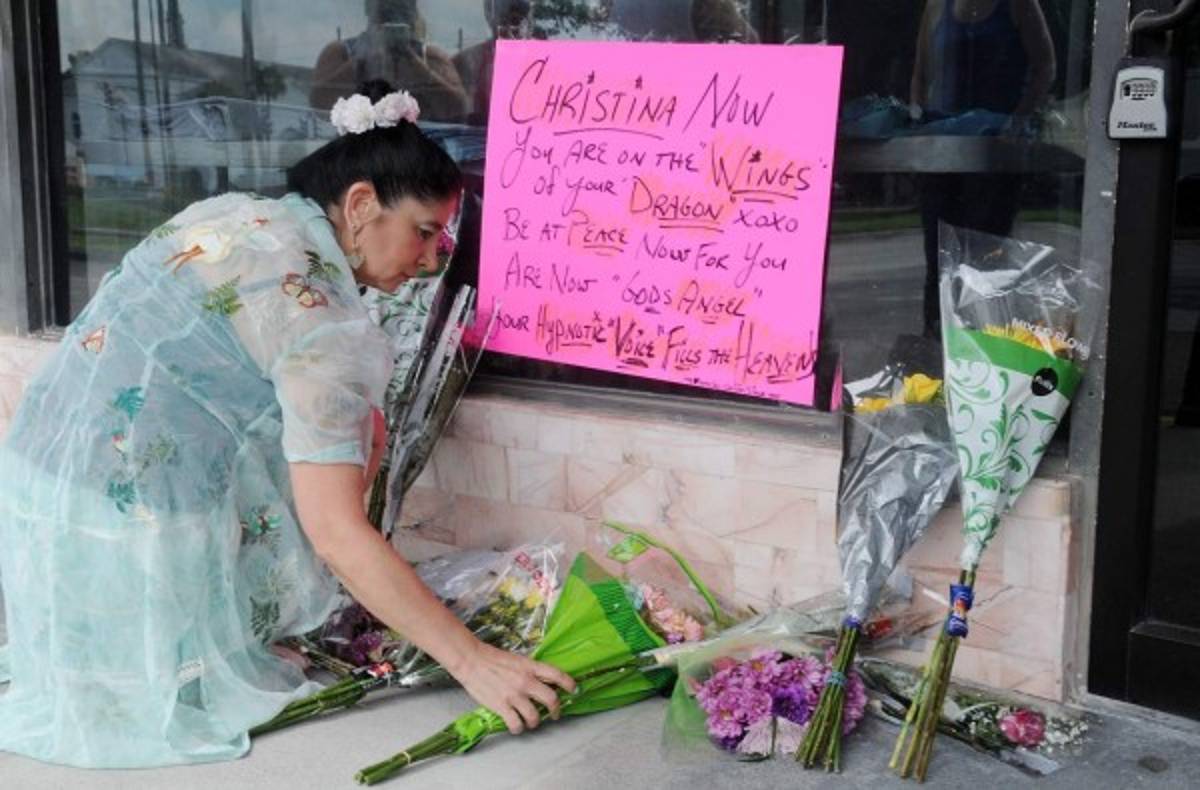 CHRISTINA NOW
YOU ARE ON THE "WINGS"
OF YOUR "DRAGON" XOXO
BE AT PEACE NOW FOR YOU
ARE NOW "GODS ANGEL"
YOUR HYPNOTIC "VOICE" FILLS THE HEAVENS
Master
MIXED BLOOM